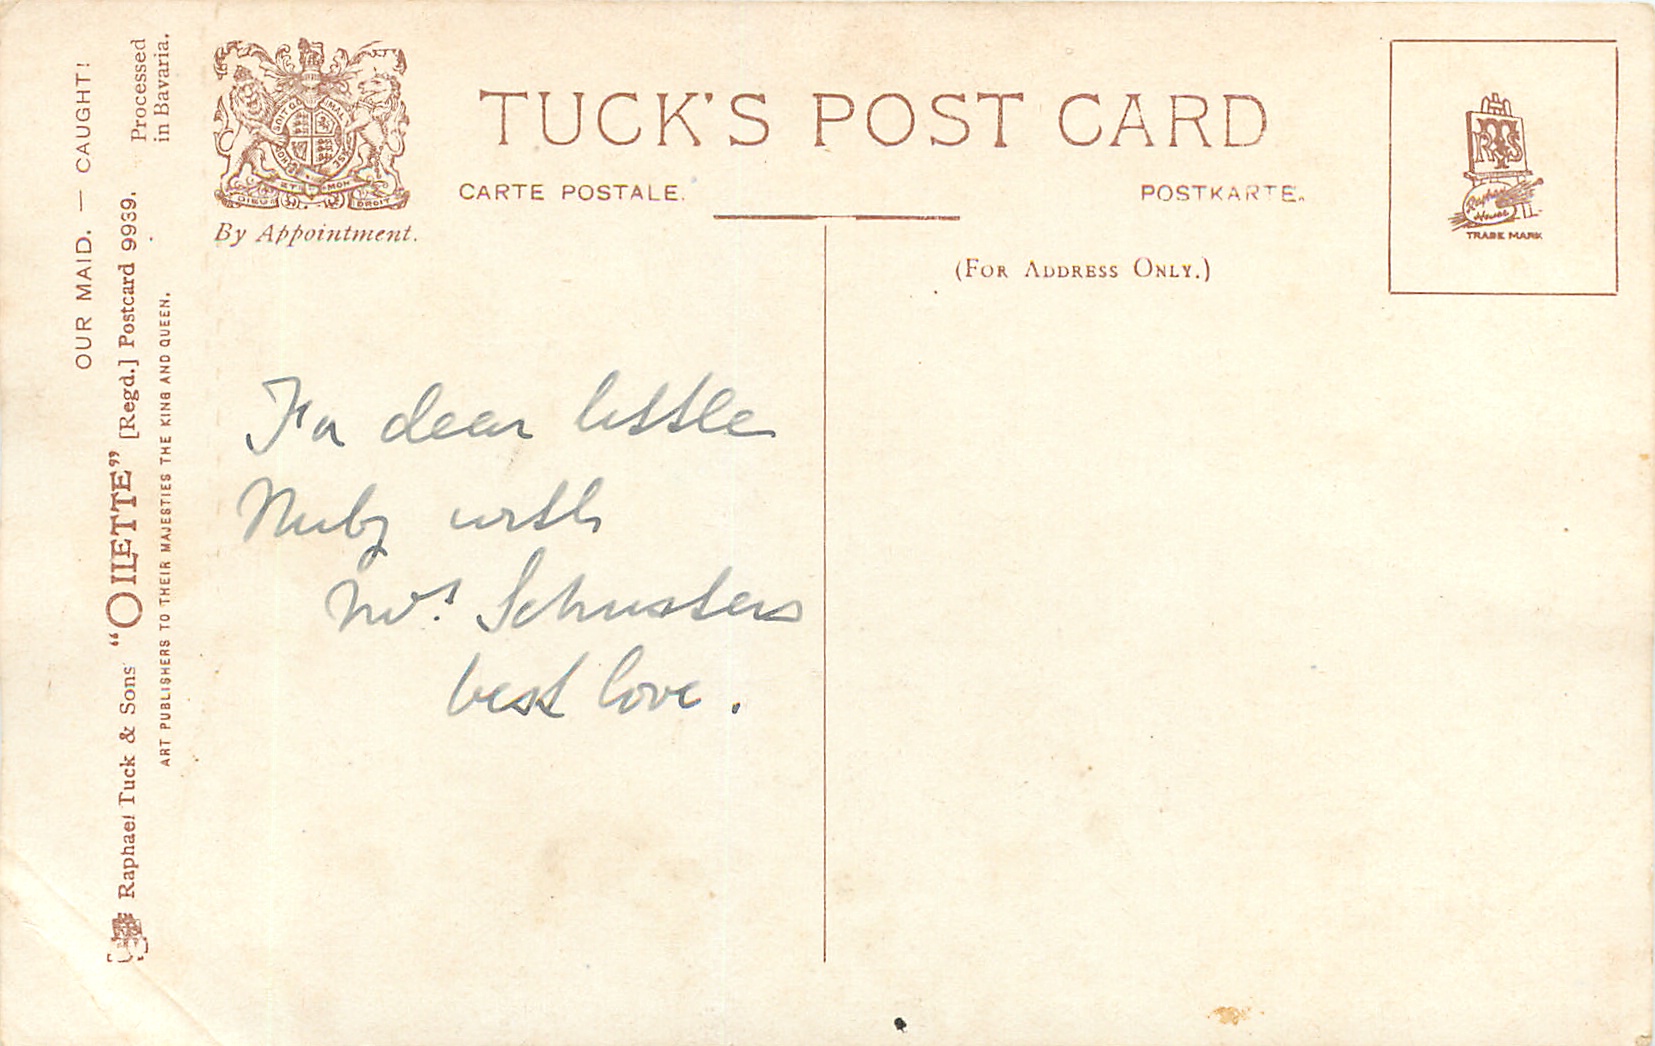 OUR MAID. — CAUGHT!
Raphael Tuck & Sons' "OILETTE" [Regd.] Postcard 9939.
Processed
in Bavaria.
ART PUBLISHERS TO THEIR MAJESTIES THE KING AND QUEEN.
DIEU ET MON DROIT
By Appointment.
TUCK'S POST CARD
CARTE POSTALE.
POSTKARTE.
(FOR ADDRESS ONLY.)
Raphael
House
TRADE MARK
For dear little
with
Mrs. Schusters
best love.